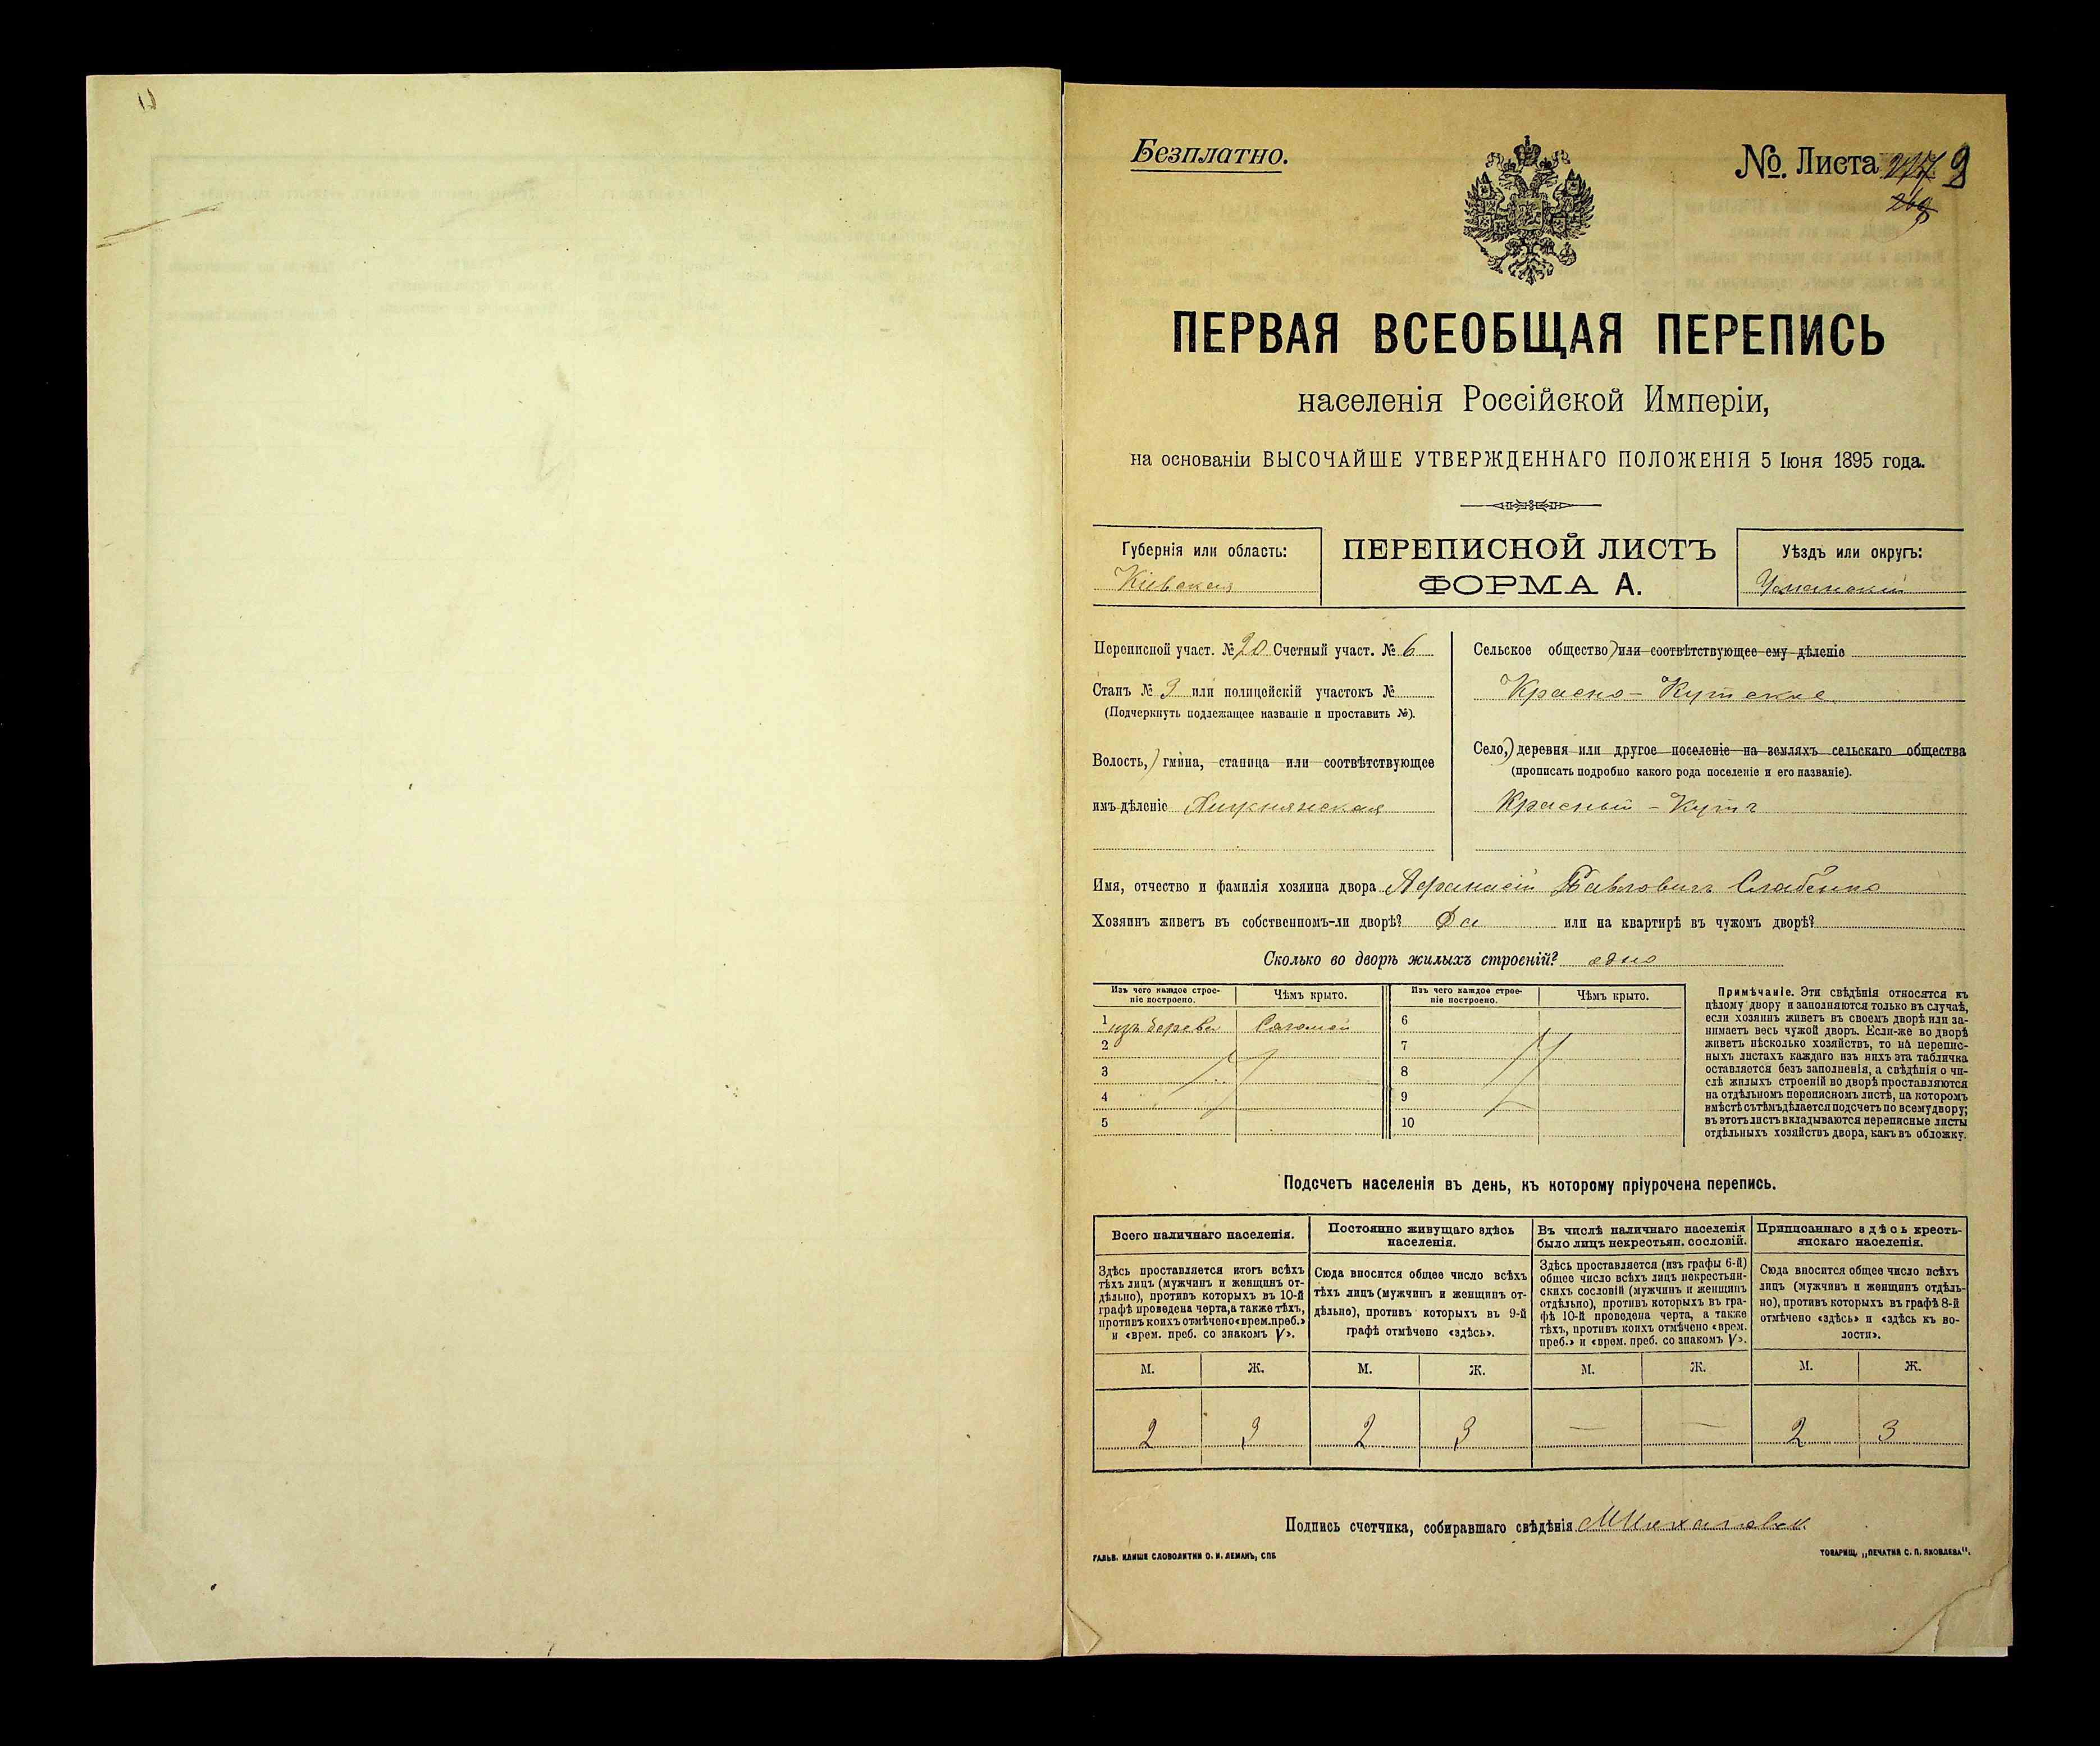 Безплатно.
№. Листа 9
ПЕРВАЯ ВСЕОБЩАЯ ПЕРЕПИСЬ
населенія Россійской Имперіи,
на основаніи ВЫСОЧАЙШЕ УТВЕРЖДЕННАГО ПОЛОЖЕНІЯ 5 Іюня 1895 года.
Губернія или область:
Кіевская
ПЕРЕПИСНОЙ ЛИСТЪ
ФОРМА А.
Уѣздъ или округъ:
Уманскій
Переписной участ. № 20 Счетный участ. № 6
Станъ № 3 или полицейскій участокъ №
(Подчеркнуть подлежащее названіе и проставить №).
Волость, гмина, станица или соотвѣтствующее
имъ дѣленіе
Сельское общество или соотвѣтствующее ему дѣленіе
Красно-Кутское
Село, деревня или другое поселеніе на земляхъ сельскаго общества
(прописать подробно какого рода поселеніе и его названіе).
Красный-Кутъ
Имя, отчество и фамилія хозяина двора Афанасій Павловичъ
Хозяинъ живетъ въ собственномъ-ли дворѣ? Да или на квартирѣ въ чужомъ дворѣ?
Сколько во дворѣ жилыхъ строеній? одно
Изъ чего каждое строе-
ніе построено.
Чѣмъ крыто.
1 изъ дерева Соломой
2
3
4
5
Изъ чего каждое строе-
ніе построено.
Чѣмъ крыто.
6
7
8
9
10
Примѣчаніе. Эти свѣдѣнія относятся къ
цѣлому двору и заполняются только въ случаѣ,
если хозяинъ живетъ въ своемъ дворѣ или за-
нимаетъ весь чужой дворъ. Если-же во дворѣ
живетъ нѣсколько хозяйствъ, то на перепис-
ныхъ листахъ каждаго изъ нихъ эта табличка
оставляется безъ заполненія, а свѣдѣнія о чи-
слѣ жилыхъ строеній во дворѣ проставляются
на отдѣльномъ переписномъ листѣ, на которомъ
вмѣстѣ съ тѣмъ дѣлается подсчетъ по всему двору;
въ этотъ листъ вкладываются переписные листы
отдѣльныхъ хозяйствъ двора, какъ въ обложку.
Подсчетъ населенія въ день, къ которому пріурочена перепись.
Всего наличнаго населенія.
Здѣсь проставляется итогъ всѣхъ
тѣхъ лицъ (мужчинъ и женщинъ от-
дѣльно), противъ которыхъ въ 10-й
графѣ проведена черта, а также тѣхъ,
противъ коихъ отмѣчено «врем. преб.»
и «врем. преб. со знакомъ V».
М. Ж.
2 3
Постоянно живущаго здѣсь
населенія.
Сюда вносится общее число всѣхъ
тѣхъ лицъ (мужчинъ и женщинъ от-
дѣльно), противъ которыхъ въ 9-й
графѣ отмѣчено «здѣсь».
М. Ж.
2 3
Въ числѣ наличнаго населенія
было лицъ некрестьян. сословій.
Здѣсь проставляется (изъ графы 6-й)
общее число всѣхъ лицъ некрестьян-
скихъ сословій (мужчинъ и женщинъ
отдѣльно), противъ которыхъ въ гра-
фѣ 10-й проведена черта, а также
тѣхъ, противъ коихъ отмѣчено «врем.
преб.» и «врем. преб. со знакомъ V».
М. Ж.
— —
Приписаннаго здѣсь кресть-
янскаго населенія.
Сюда вносится общее число всѣхъ
лицъ (мужчинъ и женщинъ отдѣль-
но), противъ которыхъ въ графѣ 8-й
отмѣчено «здѣсь» и «здѣсь къ во-
лости».
М. Ж.
2 3
Подпись счетчика, собиравшаго свѣдѣнія
ГАЛЬВ. КЛИШЕ СЛОВОЛИТНИ О. И. ЛЕМАНЪ, СПБ
ТОВАРИЩ. „ПЕЧАТНЯ С. П. ЯКОВЛЕВА“.